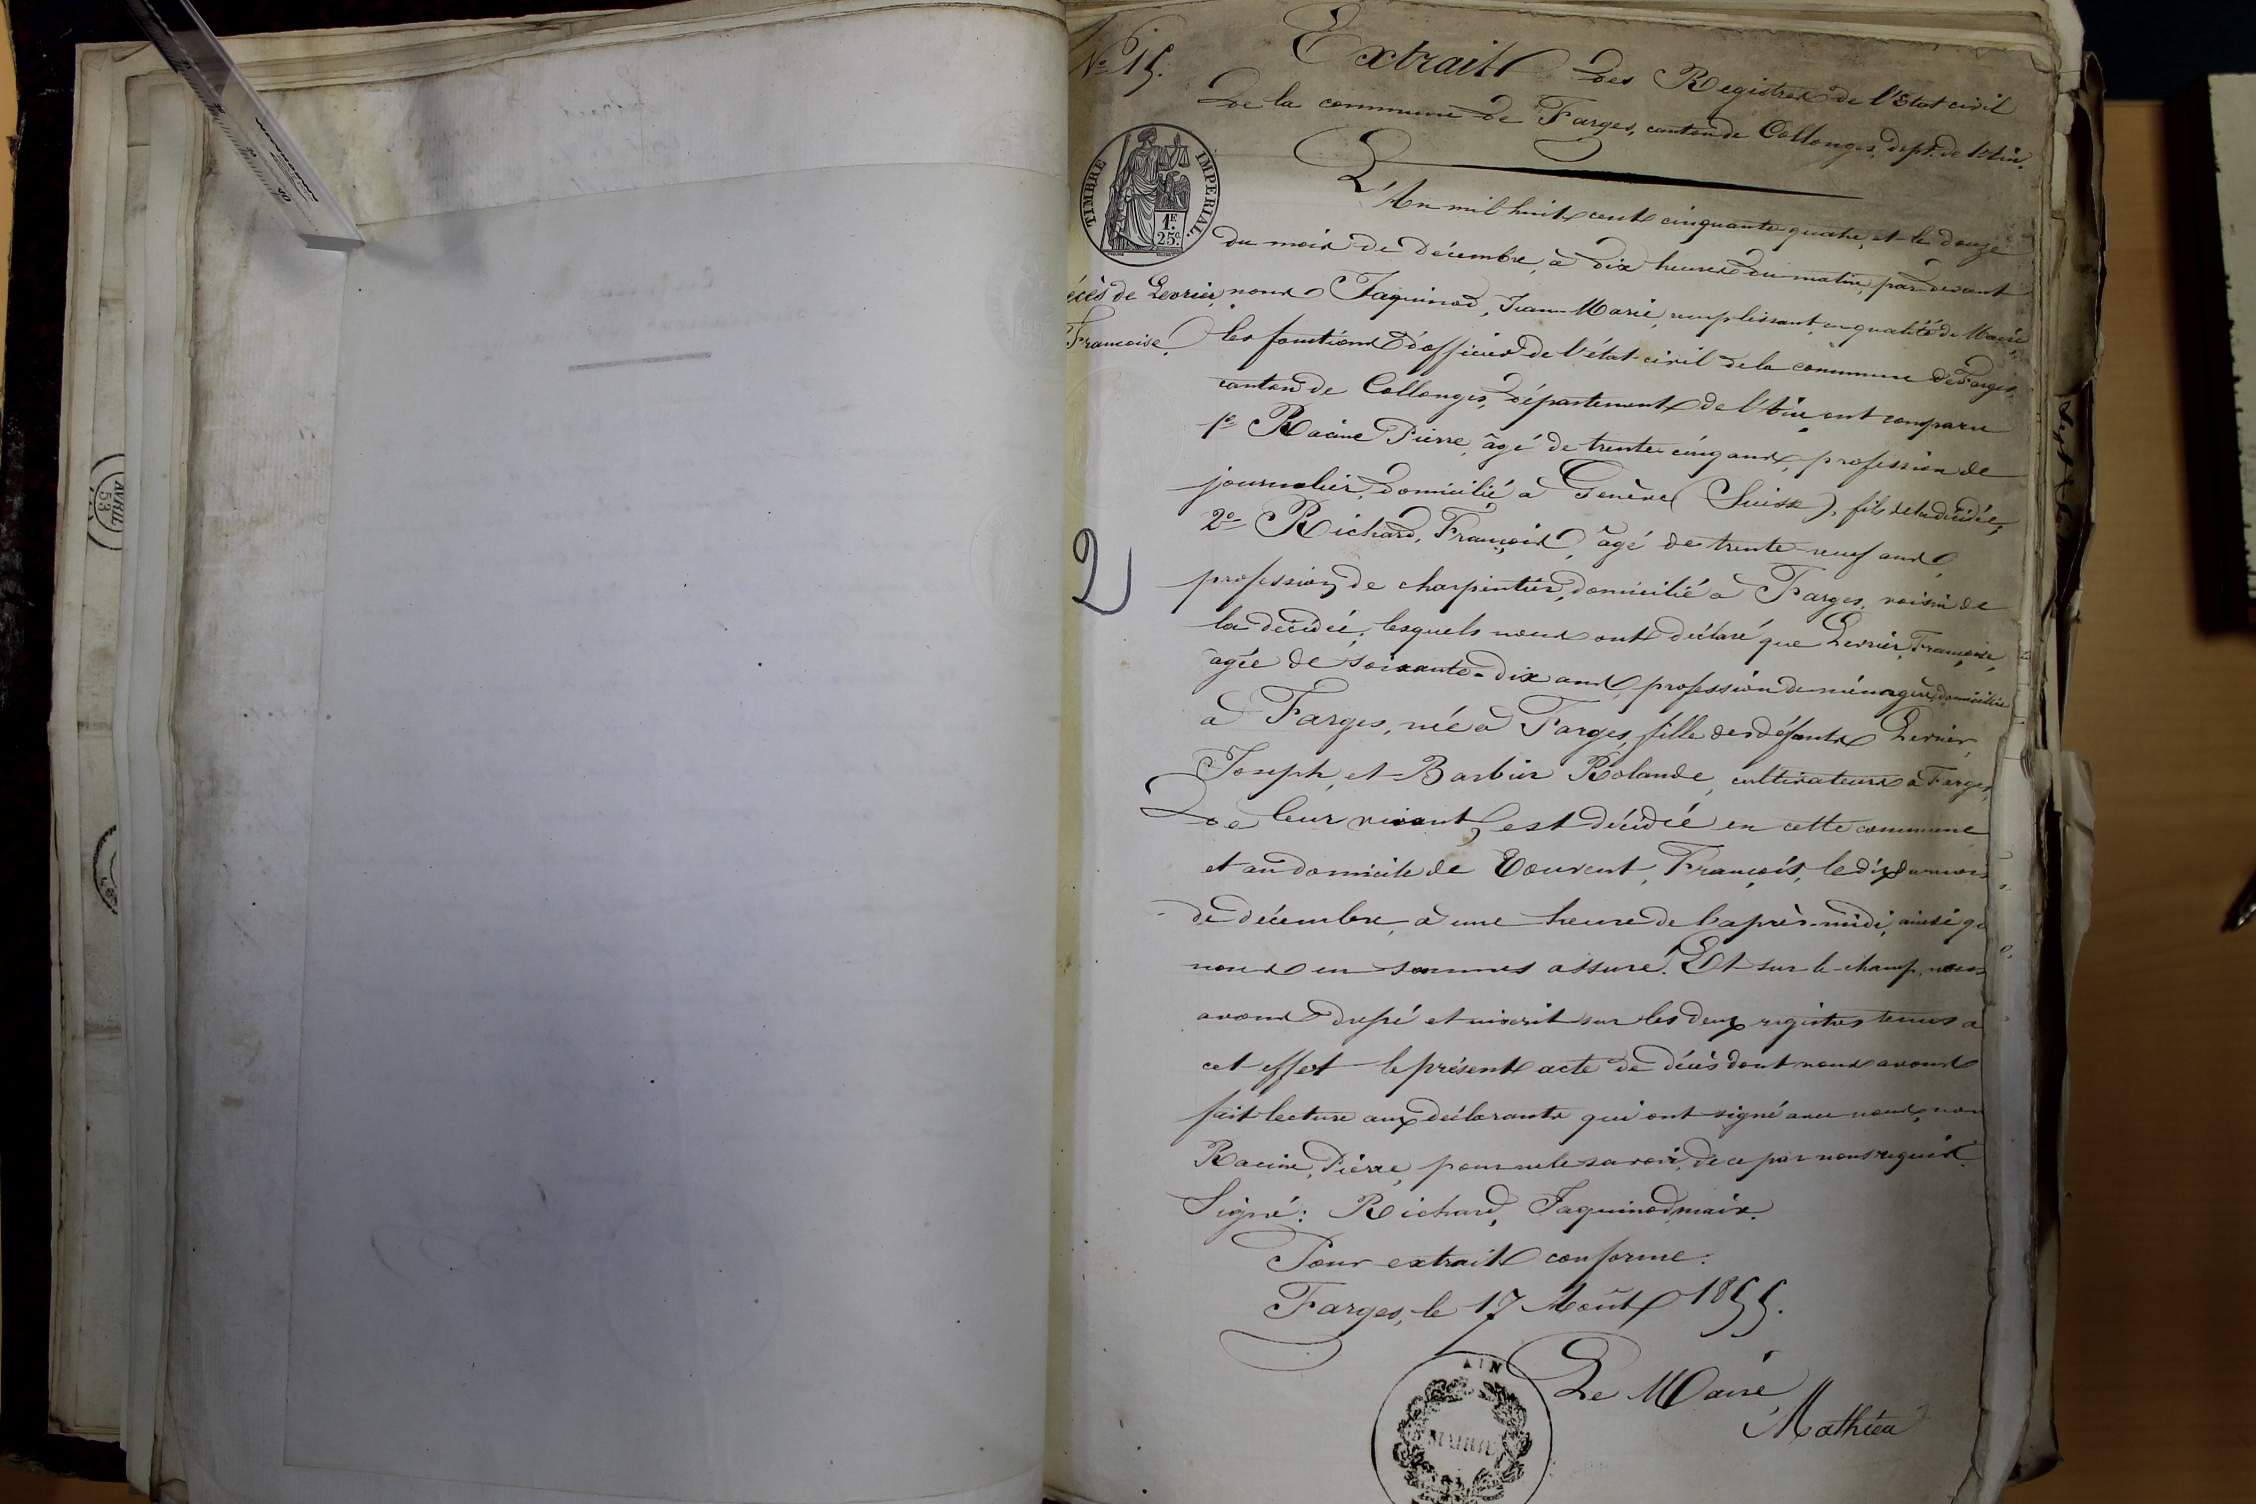 N° 15.
Extrait des Registres de l'Etat civil
de la commune de Farges, canton de Collonges, dépt. de l'Ain.
TIMBRE IMPERIAL.
1F
25c.
L'An mil huit cent cinquante quatre, et le douze
du mois de décembre, à dix heures du matin, par devant
écès de Levrier,
Françoise.
nous Jaquinod, Jean-Marie, remplissant, en qualité de Maire
les fonctions d'officier de l'état civil de la commune de Farges,
canton de Collonges, département de l'Ain ont comparu
1° Racine Pierre, âgé de trente cinq ans, profession de
journalier, domicilié à Genève (Suisse), fils de la décédée,
2° Richard, François, âgé de trente-neuf ans,
2
profession de charpentier, domicilié à Farges, voisin de
la décédée, lesquels nous ont déclaré que Levrier, Françoise,
âgée de soixante-dix ans, profession de ménagère, domiciliée
à Farges, née à Farges, fille des défunts Levrier,
Joseph, et Barbier Rolande, cultivateurs à Farges,
de leur vivant, est décédée en cette commune
et au domicile de François, le dix du mois
de décembre, à une heure de l'après-midi, ainsi qu
nous en sommes assuré. Et sur-le-champ, nous
avons dressé et inscrit sur les deux registres tenus à
cet effet le présent acte de décès dont nous avons
fait lecture aux déclarants qui ont signé avec nous, non
Racine, Pierre, pour ne le savoir, de ce par nous requis.
Signé: Richard, Jaquinod, maire.
Pour extrait conforme.
Farges, le 17 Août 1855.
Le Maire,
Mathieu
AIN
MAIRIE
AVRIL
53